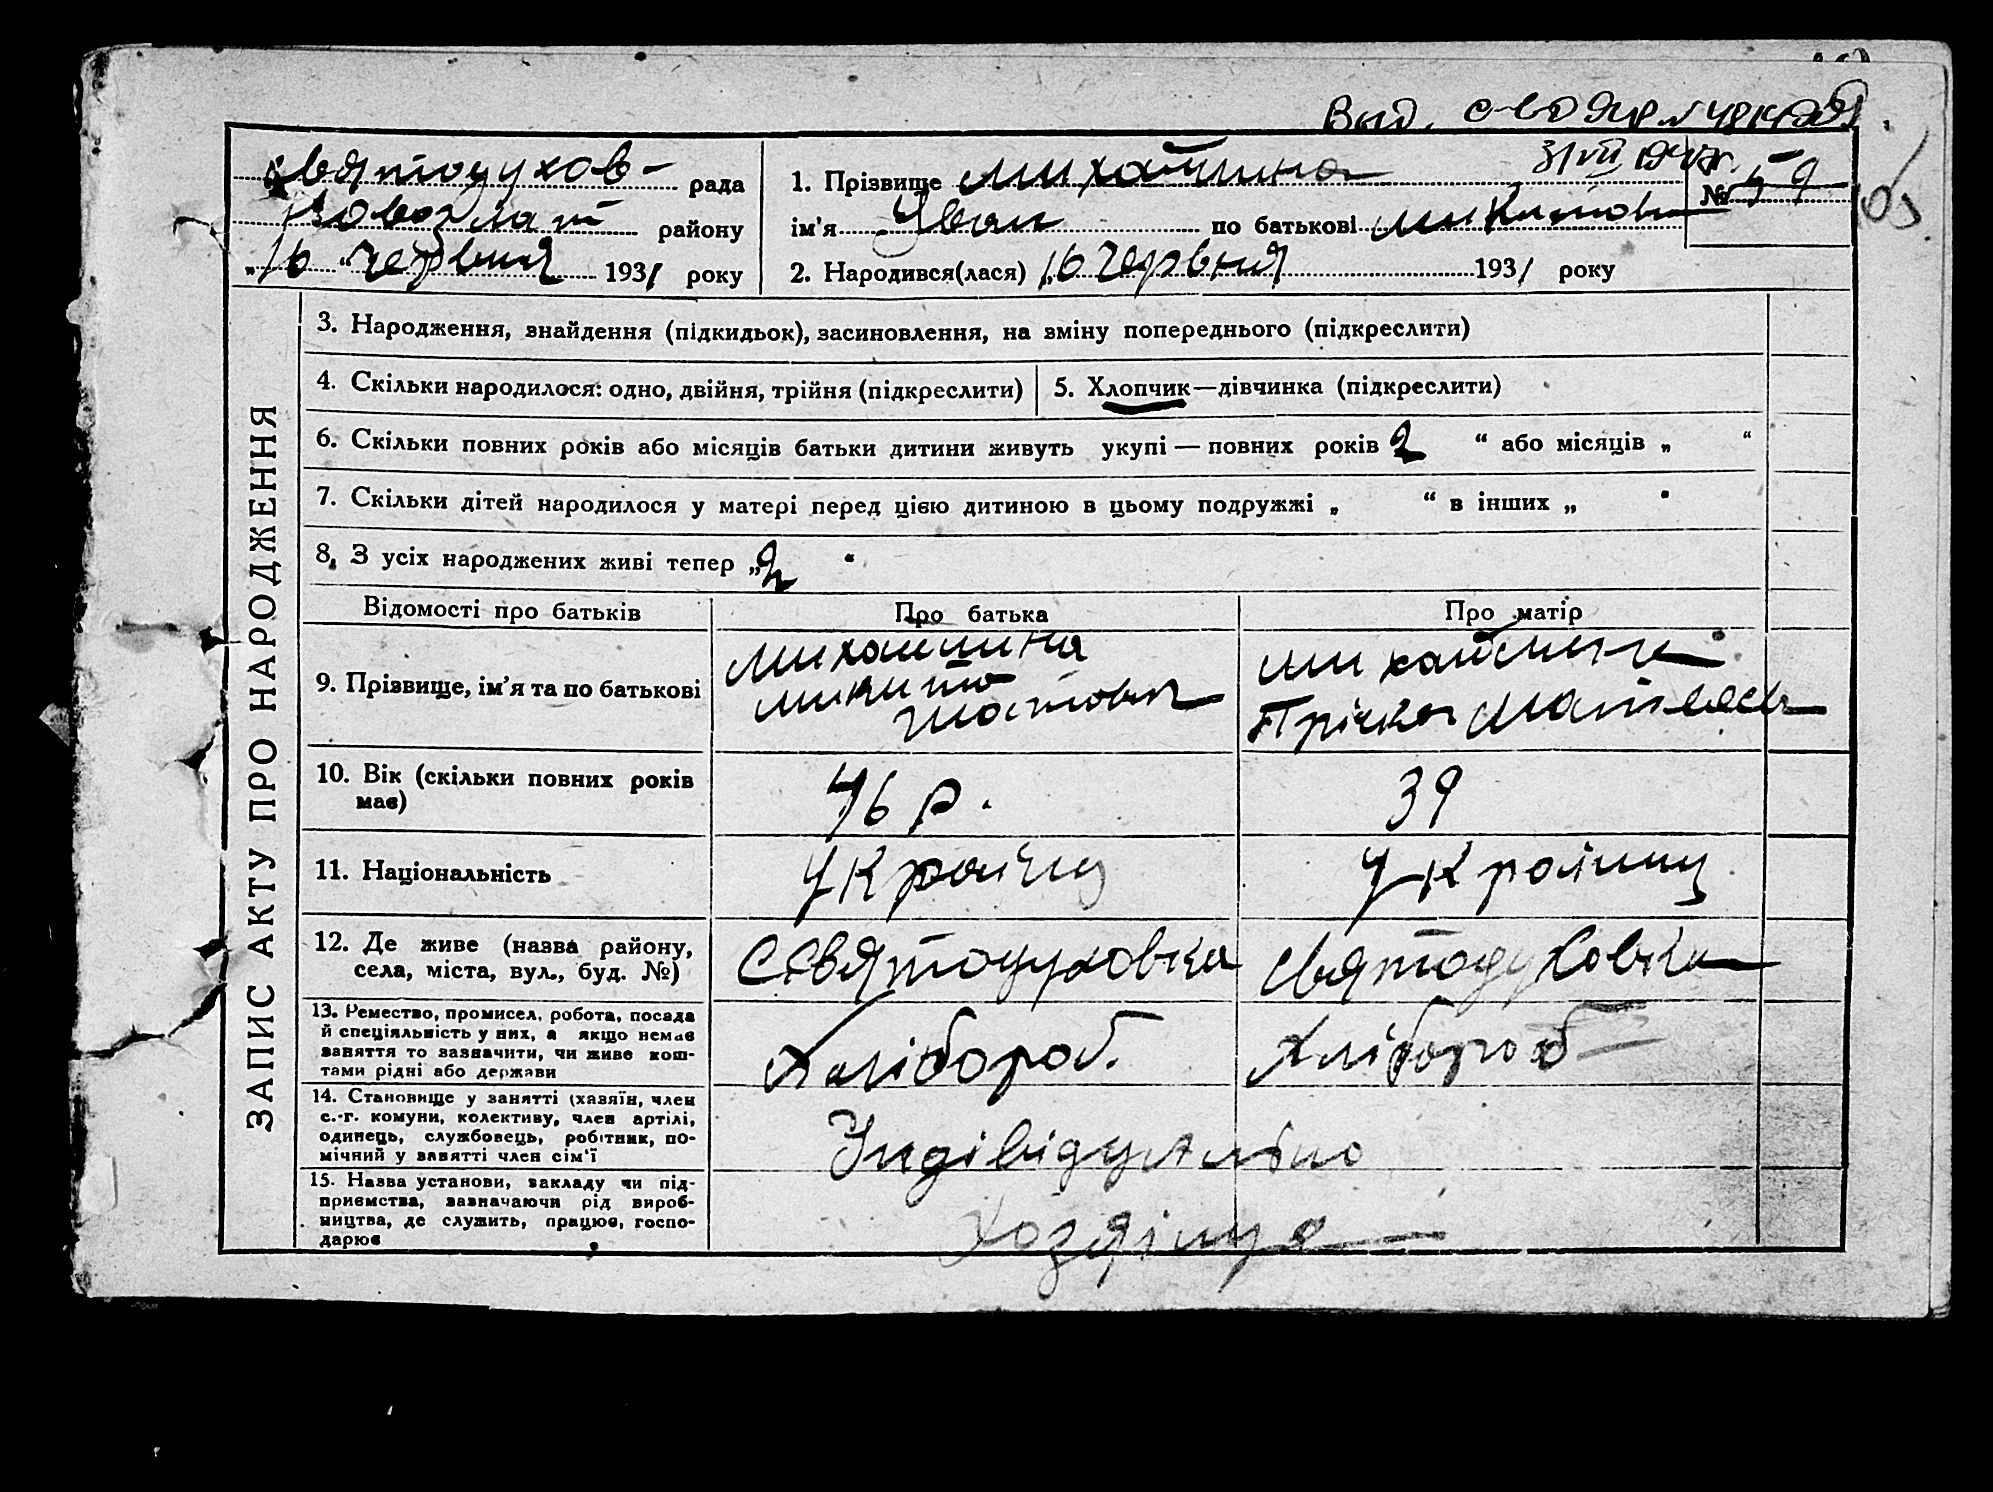 Вид. с-во
31 VII 194
Святодухов- рада
Новозлат району
„16 “ червня 1931 року
1. Прізвище Михайлина
№ 59
ім'я Йван по батькові Микитов
2. Народився(лася) 16 червня 1931 року
ЗАПИС АКТУ ПРО НАРОДЖЕННЯ
3. Народження, знайдення (підкидьок), засиновлення, на зміну попереднього (підкреслити)
4. Скільки народилося: одно, двійня, трійня (підкреслити)
5. Хлопчик—дівчинка (підкреслити)
6. Скільки повних років або місяців батьки дитини живуть укупі — повних років 2 “ або місяців „ “
7. Скільки дітей народилося у матері перед цією дитиною в цьому подружжі „ “ в інших „ “
8. З усіх народжених живі тепер „2 “
Відомості про батьків Про батька Про матір
9. Прізвище, ім'я та по батькові
Михайлина
Микита
Михайлина
Пріська Матвеев
10. Вік (скільки повних років
має)
46 р. 39
11. Національність Україн Україн
12. Де живе (назва району,
села, міста, вул., буд. №)
С Святодуховка Святодуховка
13. Ремество, промисел, робота, посада
й спеціяльність у них, а якщо немає
заняття то зазначити, чи живе кош-
тами рідні або держави
Хлібороб. Хлібороб
14. Становище у занятті (хазяїн, член
с.-г. комуни, колективу, член артілі,
одинець, службовець, робітник, по-
мічний у занятті член сім'ї
Індівідуально
15. Назва установи, закладу чи під-
приємства, зазначаючи рід вироб-
ництва, де служить, працює, госпо-
дарює
Хозяінуе